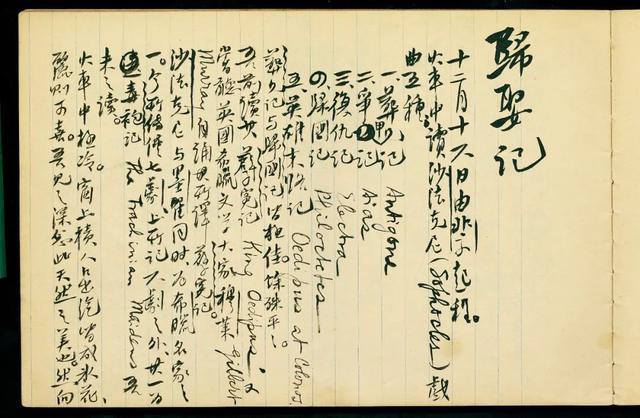 歸娶記
十二月十六日由北京起程。
火車中讀沙法克尼(Sophocles)戲
曲五種
一、葬兄記 Antigone
二、爭甲記 Aias
三、復仇記 Electra
四、歸國記 Philoctetes
五、英雄末路記 Oedipus at Colonos.
葬兄記與歸國記皆極佳,餘殊平平。
吾前讀其孽冤記 King Oedipus,又
嘗聽英國希臘文學大家穆萊 Gilbert
Murray 自誦其所譯孽冤記
沙法克尼與墨翟同時,為希臘名家之
一。今所傳僅七劇,上所記六劇之外,其一為
毒袍記 The Trachinian Maidens 吾
未之讀。
火車中極冷,窗上積人口出汽皆成冰花,
麗則可喜。吾見之深念此天然之美也。然向